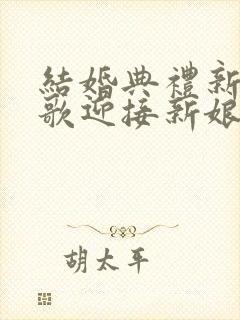 結婚典禮新
歌迎接新娘
胡太平